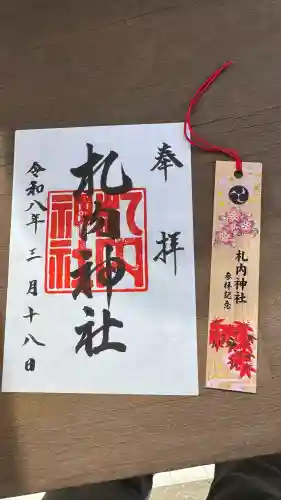 奉拝
札内神社
札内神社
令和八年三月十八日
札内神社
参拝記念